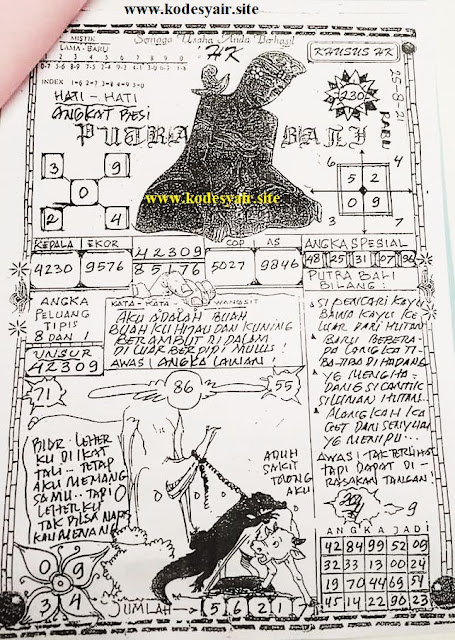 www.kodesyair.site
Semoga Usaha Anda Berhasil
MISTIK
LAMA - BARU
HK
KHUSUS HK
25-8-21
RABU
230
1 2 3 4 5 6 7 8 9 0
INDEX 1-6 2-7 3-8 4-9 5-0
HATI - HATI
ANGKAT BESI
PUTRA BALI
3 9
0
2 4
6 4
5 2
0 9
3 7
www.kodesyair.site
KEPALA EKOR
4230 9576
42309
85176
COP AS
5027 9846
ANGKA SPESIAL
48 25 31 07 96
PUTRA BALI
BILANG :
ANGKA
PELUANG
TIPIS
8 DAN 1
UNSUR
42309
KATA - KATA - WANGSIT
AKU ADALAH BUAH
BUAH KU HIJAU DAN KUNING
BERAMBUT DI DALAM
DI LUAR BERPIPI MULUS !
AWAS ! ANGKA LAWAN !
SI PENCARI KAYU
BAWA KAYU KE
LUAR DARI HUTAN
BARU BEBERA-
PA LANGKA TI-
BA-TIBA DI HADANG
YE MENGHA-
DANG SI CANTIK
SILUMAN HUTAN...
ALANGKAH KA
GET DAN SENYUMAN
YE MENIPU...
AWAS ! TAK TERLIHAT
TAPI DAPAT DI-
RASAKAN TANGAN !
71
86
55
BIAR LEHER
KU DI IKAT
TALI -- TETAP
AKU MEMANG
SAMU.. TAPI
LEHERKU
TAK BISA NAPAS
KAU MENANG
ADUH
SAKIT
TOLONG
AKU
9
0 9
3 4
JUMLAH → 5 6 2 1 7
ANGKA JADI
42 84 99 52 09
32 33 13 00 24
19 70 44 69 54
45 14 22 90 23